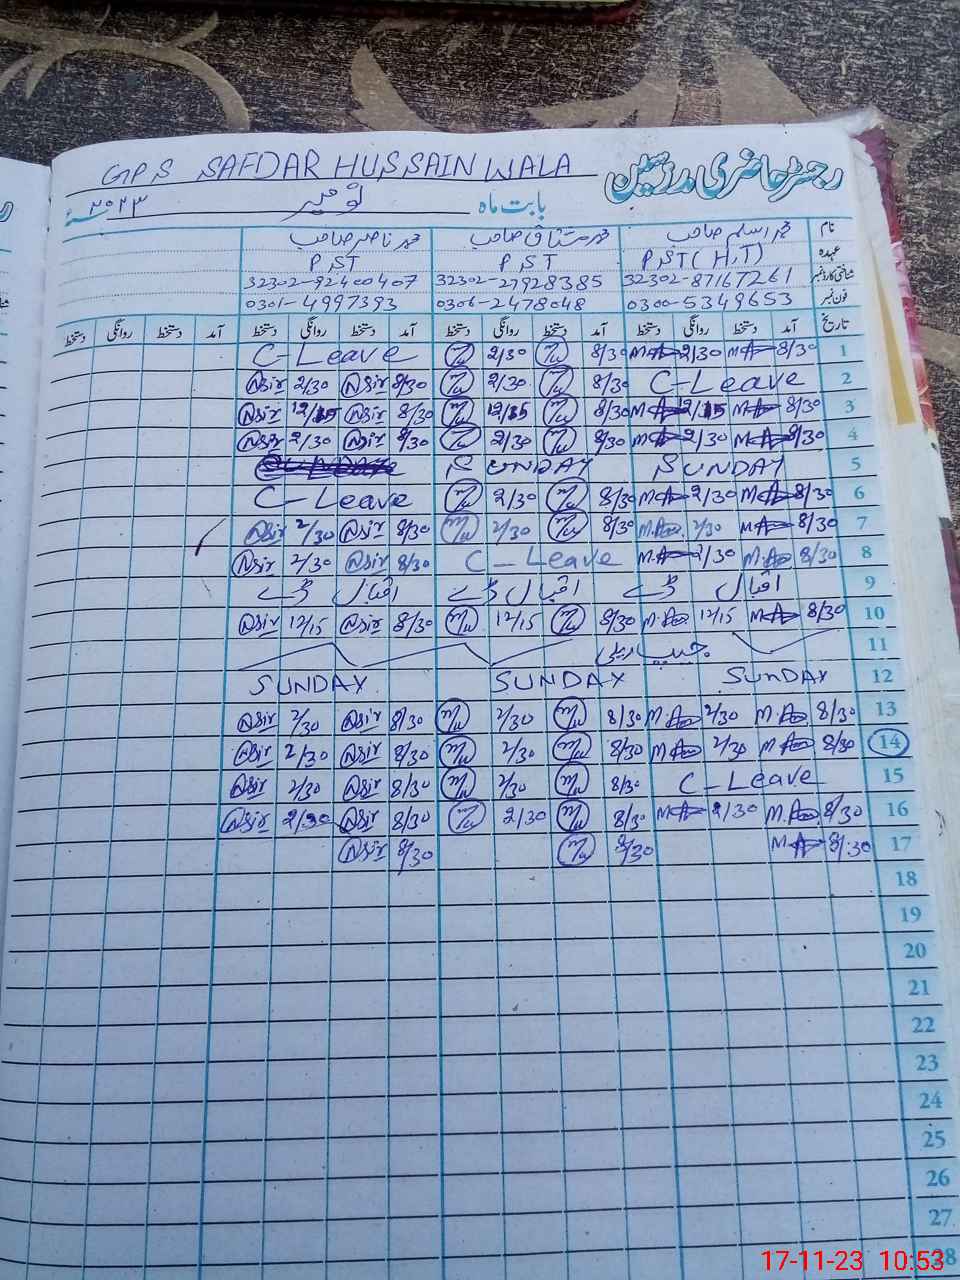 GPS SAFDAR HUSSAIN WALA رجسٹر حاضری مدرسین
بابت ماہ نومبر ۲۰۲۳
نام محمد اسلم صاحب محمد مشتاق صاحب محمد ناصر صاحب
عہدہ P.ST (H.T) P.ST P.ST
شناختی کارڈ نمبر 32302-87167261 32302-27928385 32302-92400407
فون نمبر 0300-5349653 0306-2478048 0301-4997393
تاریخ آمد دستخط روانگی دستخط آمد دستخط روانگی دستخط آمد دستخط روانگی دستخط آمد دستخط روانگی دستخط
1 8/30 M.A 2/30 M.A 8/30 2/30 C-Leave
2 C-Leave 8/30 2/30 8/30 Nasir 2/30 Nasir
3 8/30 M.A 12/15 M.A 8/30 12/15 8/30 Nasir 12/15 Nasir
4 8/30 M.A 2/30 M.A 8/30 2/30 8/30 Nasir 2/30 Nasir
5 SUNDAY SUNDAY SUNDAY
6 8/30 M.A 2/30 M.A 8/30 2/30 C-Leave
7 8/30 M.A 2/30 M.A 8/30 2/30 8/30 Nasir 2/30 Nasir
8 8/30 M.A 2/30 M.A C-Leave 8/30 Nasir 2/30 Nasir
9 اقبال ڈے اقبال ڈے اقبال ڈے
10 8/30 M.A 12/15 M.A 8/30 12/15 8/30 Nasir 12/15 Nasir
11
12 SUNDAY SUNDAY SUNDAY
13 8/30 M.A 2/30 M.A 8/30 2/30 8/30 Nasir 2/30 Nasir
14 8/30 M.A 2/30 M.A 8/30 2/30 8/30 Nasir 2/30 Nasir
15 C-Leave 8/30 2/30 8/30 Nasir 2/30 Nasir
16 8/30 M.A 2/30 M.A 8/30 2/30 8/30 Nasir 2/30 Nasir
17 8/30 M.A 8/30 8/30 Nasir
18
19
20
21
22
23
24
25
26
27
28
17-11-23 10:53